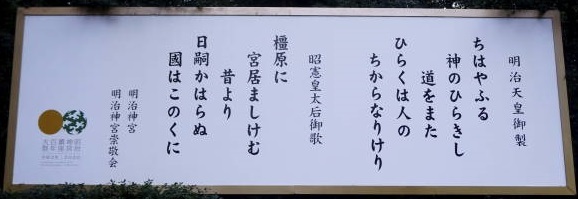 明治天皇御製
ちはやふる
神のひらきし
道をまた
ひらくは人の
ちからなりけり
昭憲皇太后御歌
橿原に
宮居ましけむ
昔より
日嗣かはらぬ
國はこのくに
明治神宮
明治神宮崇敬会